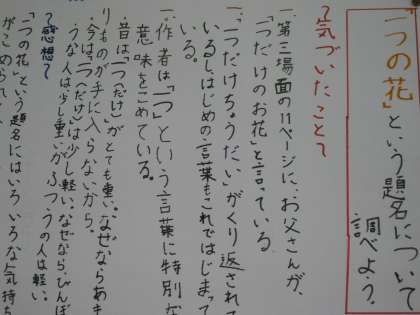 「一つの花」という題名について
調べよう。
言
〜気づいたこと〜
一、第三場面の11ページに、お父さんが、
「一つだけのお花」と言っている。
一、「一つだけちょうだい」がくり返されて
いるし、はじめの言葉もこれではじまって
いる。
一、作者は「一つ」という言葉に特別な
意味をこめている。
・昔は「一つ(だけ)」がとても重い。なぜならあま
りものが手に入らないから。
・今は「一つ(だけ)」は少し軽い。なぜなら、びんぼ
うな人は少し重いがふつうの人は軽い。
〜感想〜
「一つの花」という題名にはいろいろな気持ち
がこめられて